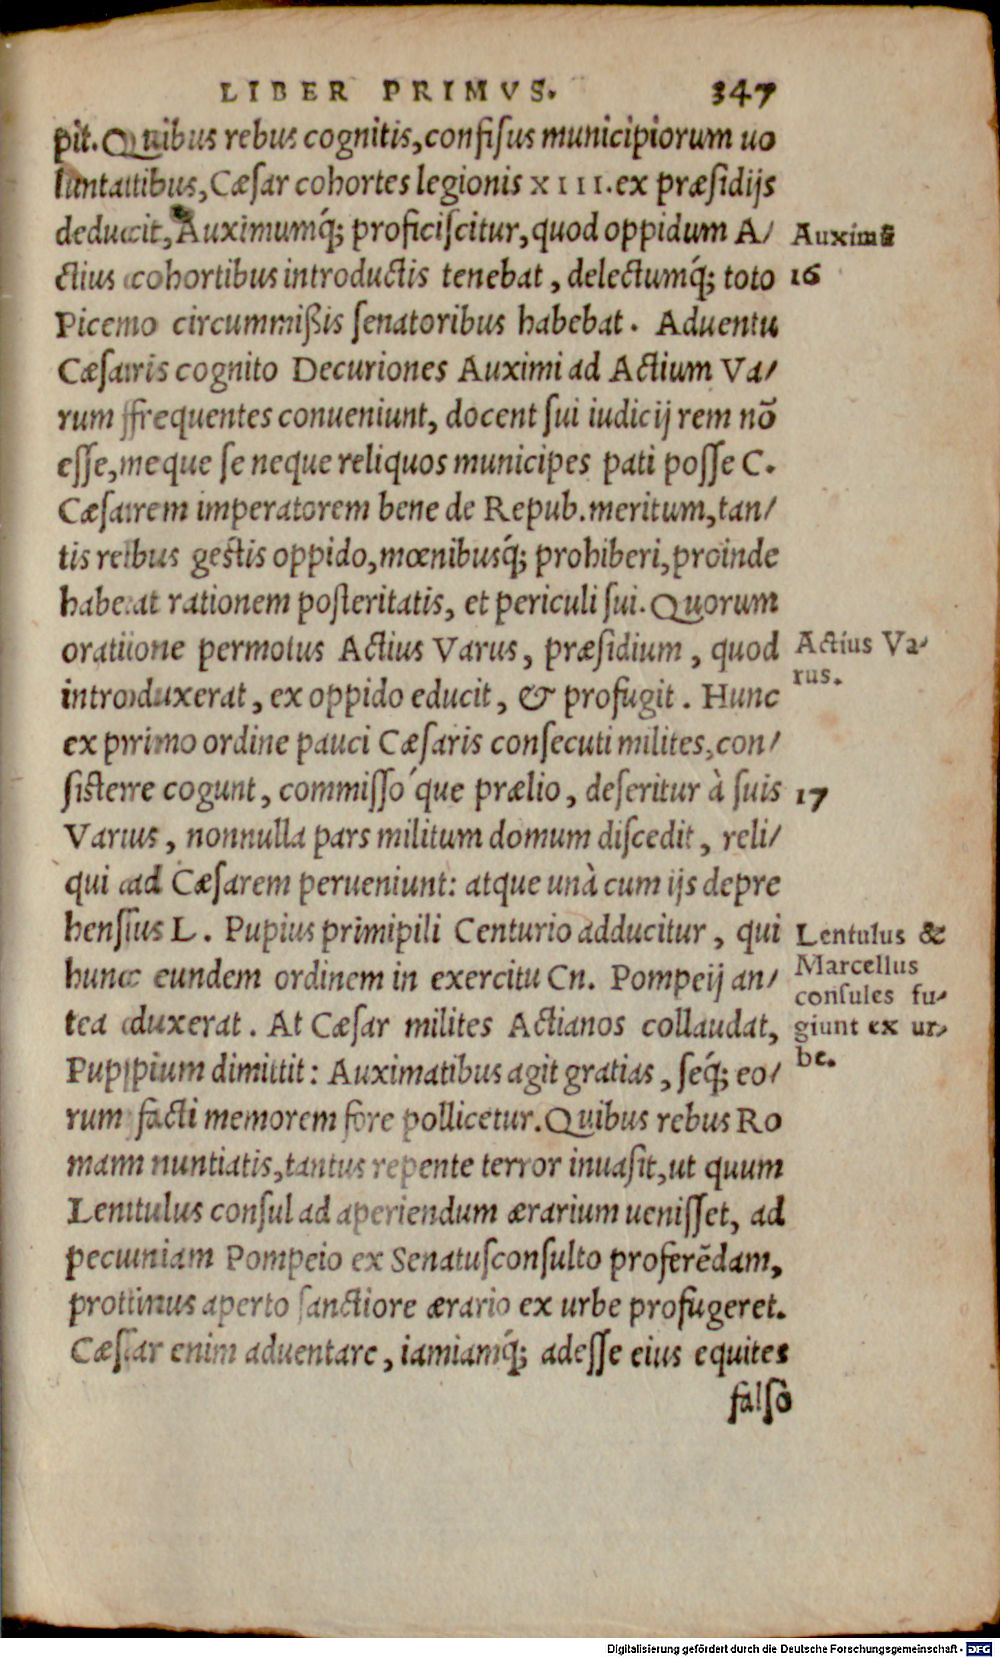 LIBER PRIMVS. 347
pit. Quibus rebus cognitis, confisus municipiorum uo
luntatibus, Cæsar cohortes legionis XIII. ex præsidijs
deducit, Auximumq́; proficiscitur, quod oppidum A/
Auximũ
ctius cohortibus introductis tenebat, delectumq́; toto
16
Piceno circummißis senatoribus habebat. Aduentu
Cæsaris cognito Decuriones Auximi ad Actium Va/
rum frequentes conueniunt, docent sui iudicij rem nō
esse, neque se neque reliquos municipes pati posse C.
Cæsarem imperatorem bene de Repub. meritum, tan/
tis rebus gestis oppido, mœnibusq́; prohiberi, proinde
habeat rationem posteritatis, et periculi sui. Quorum
oratione permotus Actius Varus, præsidium, quod
Actius Va-
introduxerat, ex oppido educit, & profugit. Hunc
rus.
ex primo ordine pauci Cæsaris consecuti milites, con/
sistere cogunt, commisso´que prælio, deseritur à suis
17
Varus, nonnulla pars militum domum discedit, reli/
qui ad Cæsarem perueniunt: atque unà cum ijs depre
hensus L. Pupius primipili Centurio adducitur, qui
Lentulus &
hunc eundem ordinem in exercitu Cn. Pompeij an/
Marcellus
consules fu-
tea duxerat. At Cæsar milites Actianos collaudat,
giunt ex ur-
Puppium dimittit: Auximatibus agit gratias, seq́; eo/
be.
rum facti memorem fore pollicetur. Quibus rebus Ro
mam nuntiatis, tantus repente terror inuasit, ut quum
Lentulus consul ad aperiendum ærarium uenisset, ad
pecuniam Pompeio ex Senatusconsulto proferēdam,
protinus aperto sanctiore ærario ex urbe profugeret.
Cæsar enim aduentare, iamiamq́; adesse eius equites
falsò
Digitalisierung gefördert durch die Deutsche Forschungsgemeinschaft - DFG